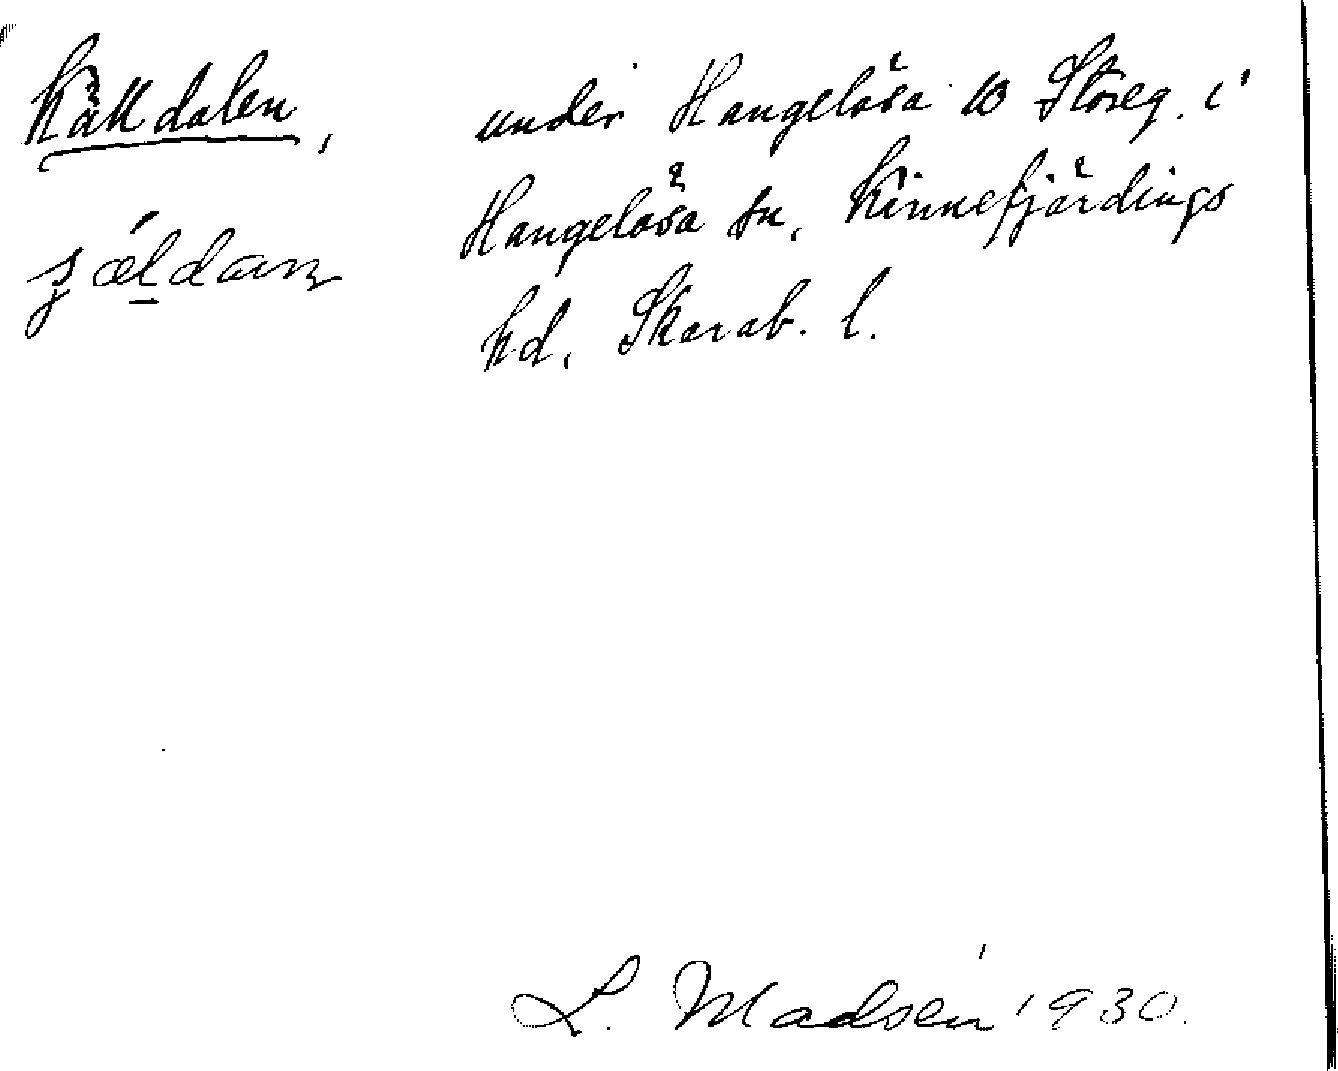 Källdalen, under Hangelösa 10 Storeg. i
Hangelösa sn, Kinnefjärdings
hd, Skarab. l.
L. Madsén 1930.